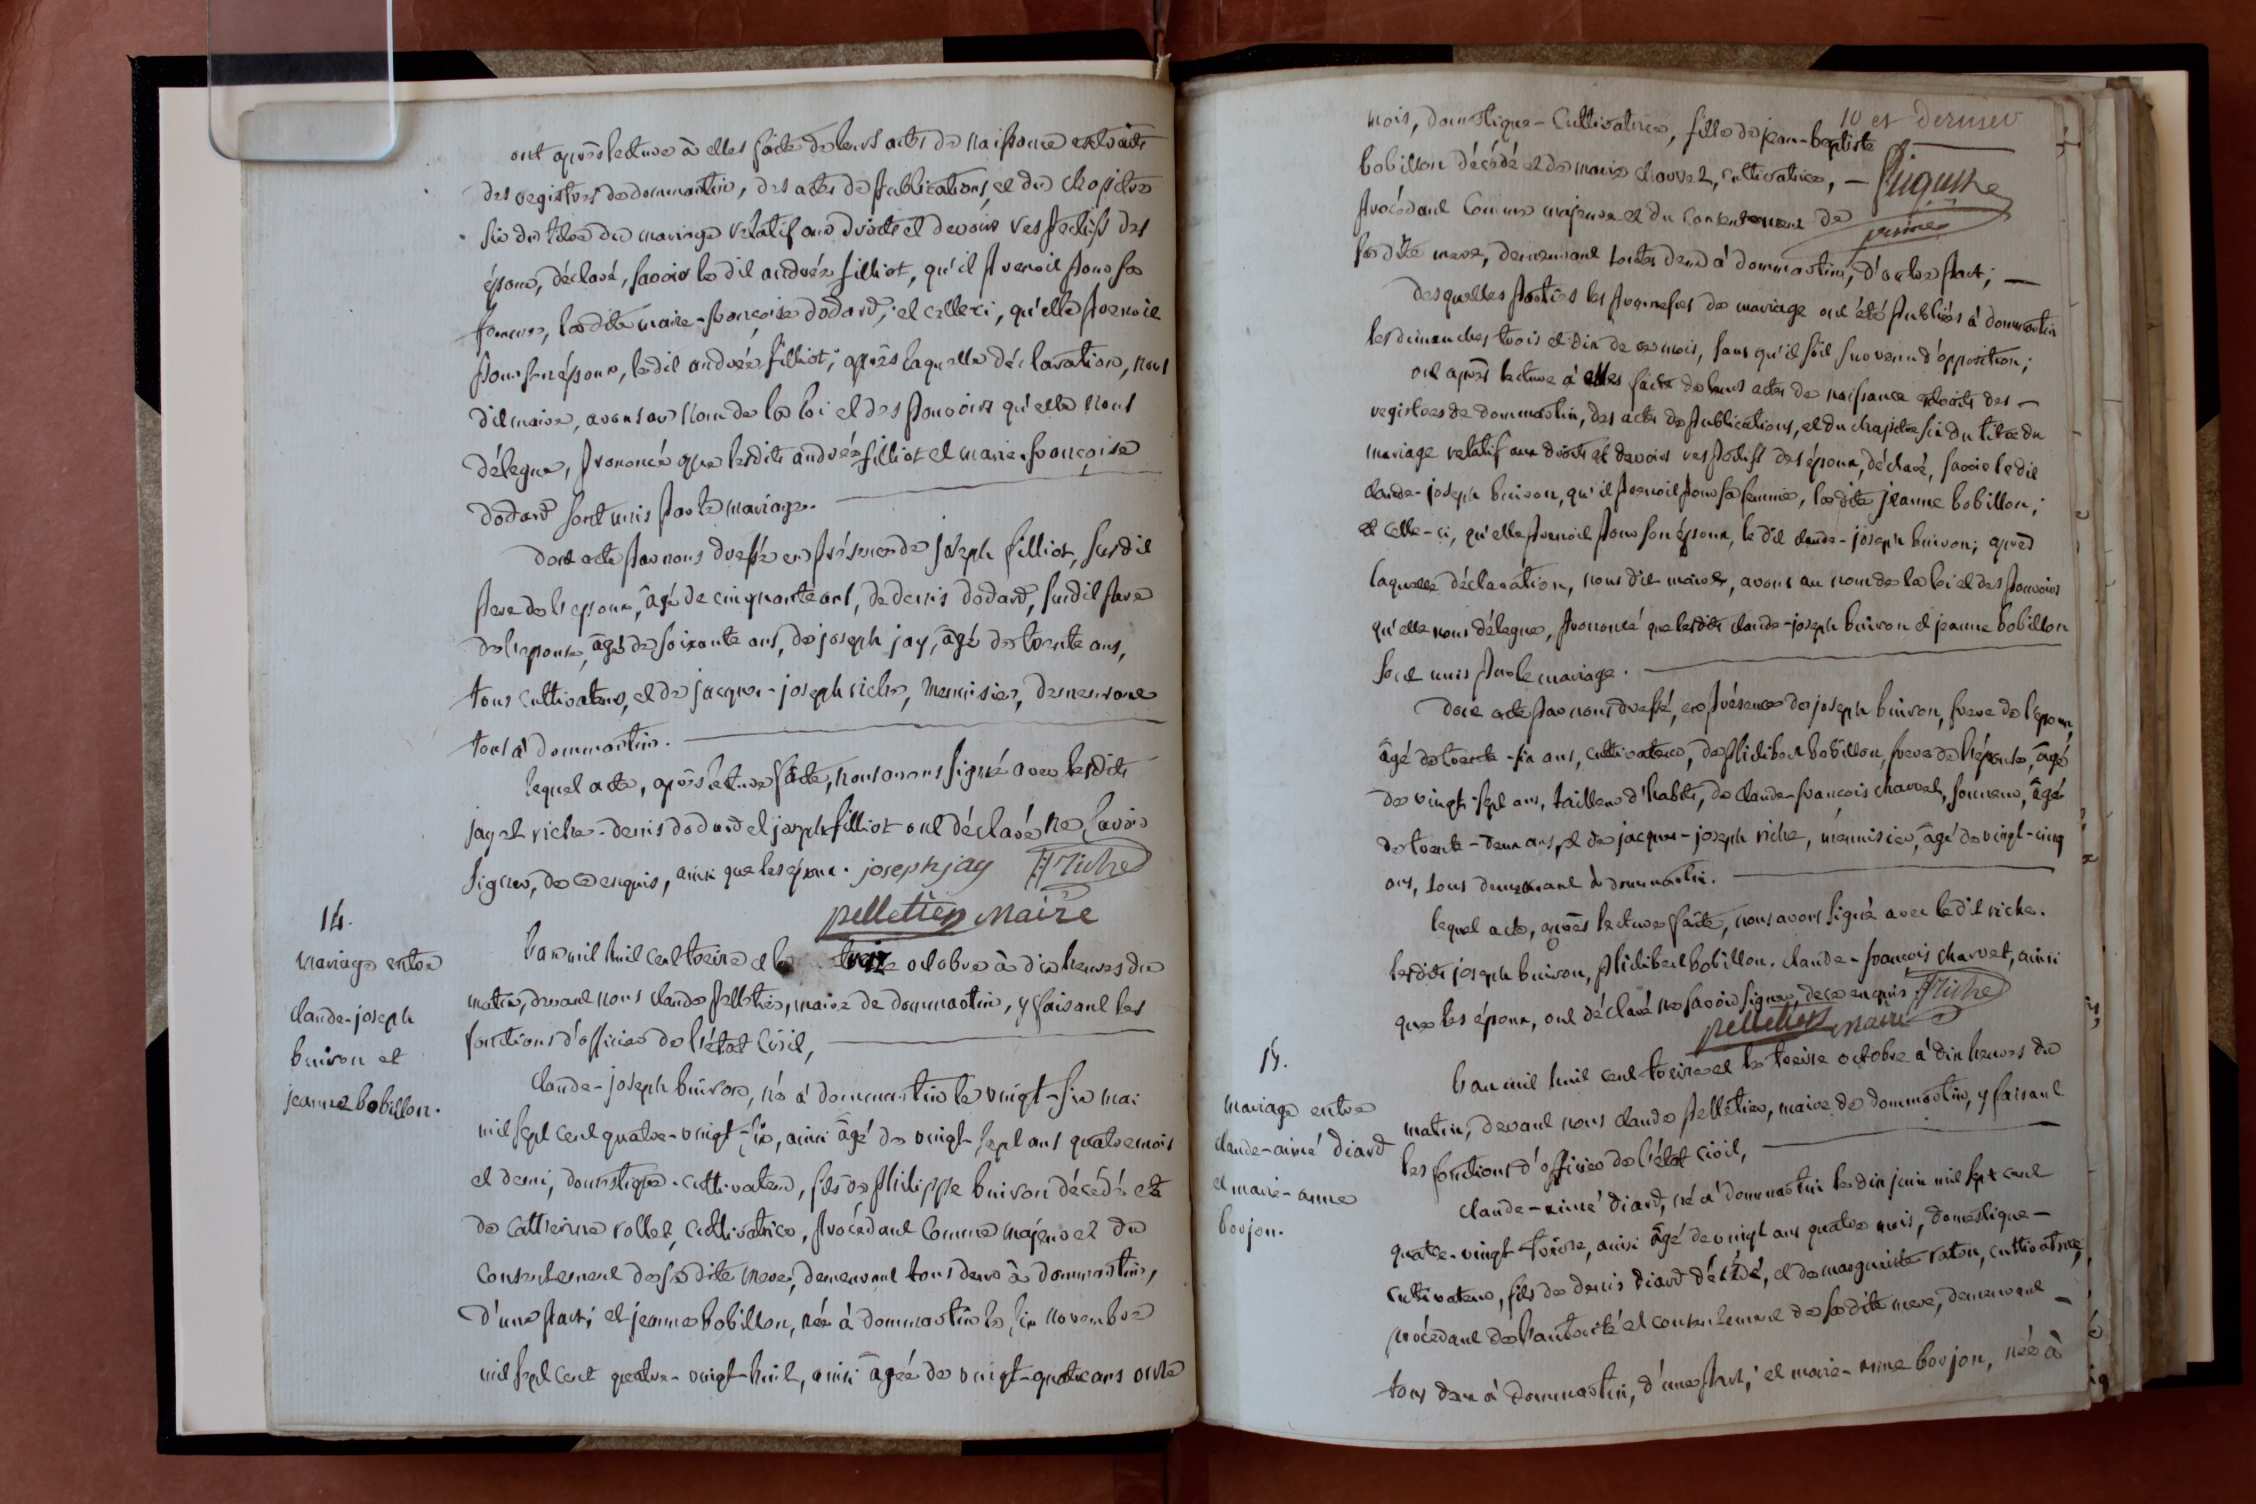 ont après lecture à elles faite de leurs actes de naissance extraits
des registres de dommartin, des actes de publications, et du chapitre
six du titre du mariage relatif aux droits et devoirs respectifs des
époux, déclaré, savoir le dit andréa filliot, qu'il prenoit pour sa
femme, la dite marie-françoise dodard, et celleci, qu'elle prenoit
pour son époux, le dit andréa filliot; après laquelle déclaration, nous
dit maire, avons au nom de la loi et des pouvoirs qu'elle nous
délegue, prononcé que lesdits andréa filliot et marie-françoise
dodard sont unis par le mariage.
dont acte par nous dressé en présence de joseph filliot, susdit
pere de l'epoux, âgé de cinquante ans, de denis dodard, susdit pere
de l'epouse, âgé de soixante ans, de joseph jay, âgé de trente ans,
tous cultivateurs, et de jacques-joseph riche, menuisier, demeurant
tous à dommartin.
lequel acte, après lecture faite, nous avons signé avec lesdits
jay et riche. denis dodard et joseph filliot ont déclaré ne savoir
signer, de ce enquis, ainsi que les époux. joseph jay JJ Riche
pelletier Maire
14.
Mariage entre
claude-joseph
buiron et
jeanne bobillon.
L'an mil huit cent treize et le treize octobre à dix heures du
matin, devant nous claude pelletier, maire de dommartin, y faisant les
fonctions d'officier de l'état civil,
Claude-joseph buiron, né à dommartin le vingt-six mai
mil sept cent quatre-vingt-six, ainsi âgé de vingt-sept ans quatre mois
et demi, domestique-cultivateur, fils de philippe buiron décédé et
de catherine rollet, cultivatrice, procédant comme majeur et du
consentement de sa dite mere, demeurant tous deux à dommartin,
d'une part; et jeanne bobillon, née à dommartin le six novembre
mil sept cent quatre-vingt-huit, ainsi âgée de vingt-quatre ans onze
10 et dernier
mois, domestique-cultivatrice, fille de jean-baptiste
bobillon décédé et de marie chauvet, cultivatrice,
procédant comme majeure et du consentement de
sa dite mere, demeurant toutes deux à dommartin, d'autre part;
desquelles parties les promesses de mariage ont été publiées à dommartin
les dimanches trois et dix de ce mois, sans qu'il soit survenu d'opposition;
ont après lecture à elles faite de leurs actes de naissance extraits des
registres de dommartin, des actes de publications, et du chapitre six du titre du
mariage relatif aux droits et devoirs respectifs des époux, déclaré, savoir le dit
claude-joseph buiron, qu'il prenoit pour sa femme, la dite jeanne bobillon;
et celle-ci, qu'elle prenoit pour son époux, le dit claude-joseph buiron; après
laquelle déclaration, nous dit maire, avons au nom de la loi et des pouvoirs
qu'elle nous délegue, prononcé que lesdits claude-joseph buiron et jeanne bobillon
sont unis par le mariage.
dont acte par nous dressé, en présence de joseph buiron, frere de l'epoux,
âgé de trente-six ans, cultivateur, de philibert bobillon, frere de l'épouse, âgé
de vingt-sept ans, tailleur d'habits, de claude-françois charvet, sonneur, âgé
de trente-deux ans, et de jacques-joseph riche, menuisier, âgé de vingt-cinq
ans, tous demeurant à dommartin.
lequel acte, après lecture faite, nous avons signé avec le dit riche.
lesdits joseph buiron, philibert bobillon, claude-françois charvet, ainsi
que les époux, ont déclaré ne savoir signer, de ce enquis JJ Riche
pelletier maire
15.
mariage entre
claude-aimé diard
et marie-anne
boujon.
L'an mil huit cent treize et le treize octobre à dix heures du
matin, devant nous claude pelletier, maire de dommartin, y faisant
les fonctions d'officier de l'état civil,
claude-aimé diard, né à dommartin le dix juin mil sept cent
quatre-vingt-treize, ainsi âgé de vingt ans quatre mois, domestique-
cultivateur, fils de denis diard décédé, et de marguerite raton, cultivatrice,
procédant de l'autorité et consentement de sa dite mere, demeurant
tous deux à dommartin, d'une part; et marie-anne boujon, née à